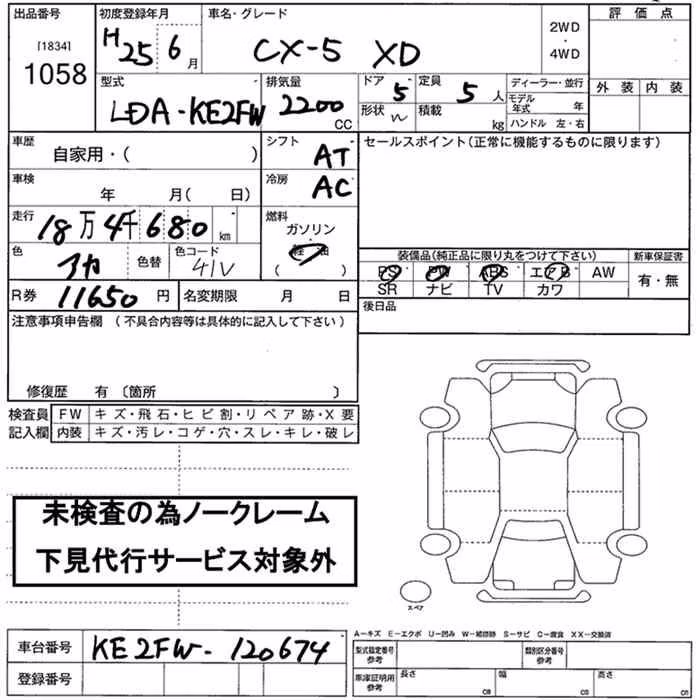 出品番号 初度登録年月 車名・グレード 評価点
[1834] 1058 H25 6月 CX-5 XD 2WD・4WD
型式 排気量 ドア 定員 ディーラー・並行 外装 内装
LDA-KE2FW 2200CC 5 5人 モデル年式 年
形状 W 積載 kg ハンドル 左・右
車歴 シフト セールスポイント(正常に機能するものに限ります)
自家用・( ) AT
車検 冷房
年 月( 日) AC
走行 燃料
18万4千680km ガソリン
色 色替 色コード 軽油 装備品(純正品に限り丸をつけて下さい) 新車保証書
アカ 41V ( ) PS PW ABS エアB AW 有・無
SR ナビ TV カワ
R券 11650円 名変期限 月 日 後日品
注意事項申告欄 (不具合内容等は具体的に記入して下さい)
修復歴 有 〔箇所 〕
検査員 FW キズ・飛石・ヒビ割・リペア跡・X要
記入欄 内装 キズ・汚レ・コゲ・穴・スレ・キレ・破レ
未検査の為ノークレーム
下見代行サービス対象外
スペア
A-キズ E-エクボ U-凹み W-補修跡 S-サビ C-腐食 XX-交換済
車台番号 KE2FW-120674 型式指定番号 参考 類別区分番号 参考
登録番号 車庫証明用 参考 長さ cm 幅 cm 高さ cm